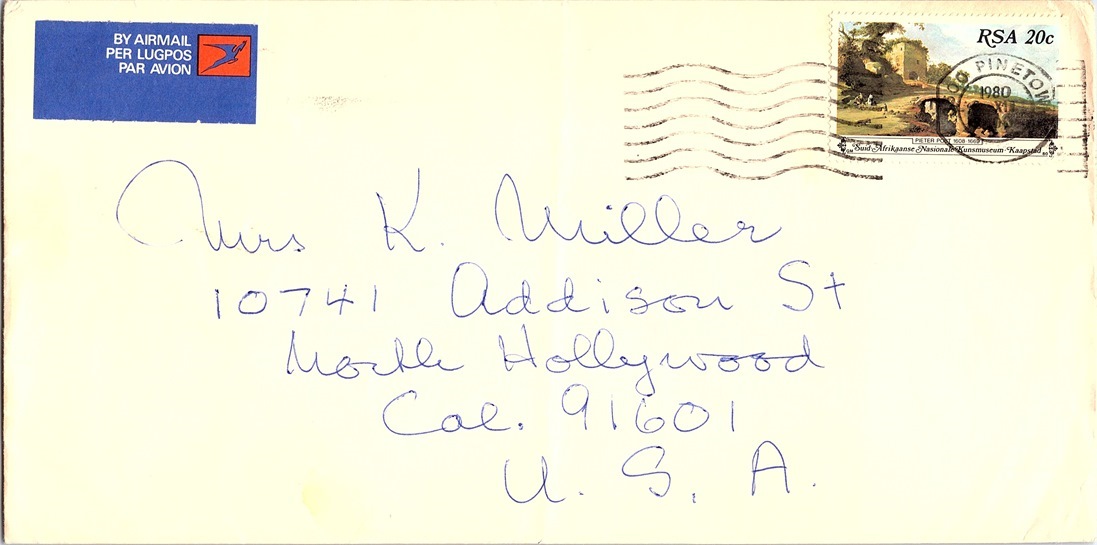 BY AIRMAIL
PER LUGPOS
PAR AVION
RSA 20c
PINETOW
1980
PIETER POST 1608-1669
Suid-Afrikaanse Nasionale Kunsmuseum - Kaapstad
Mrs K. Miller
10741 Addison St
North Hollywood
Cal. 91601
U. S. A.